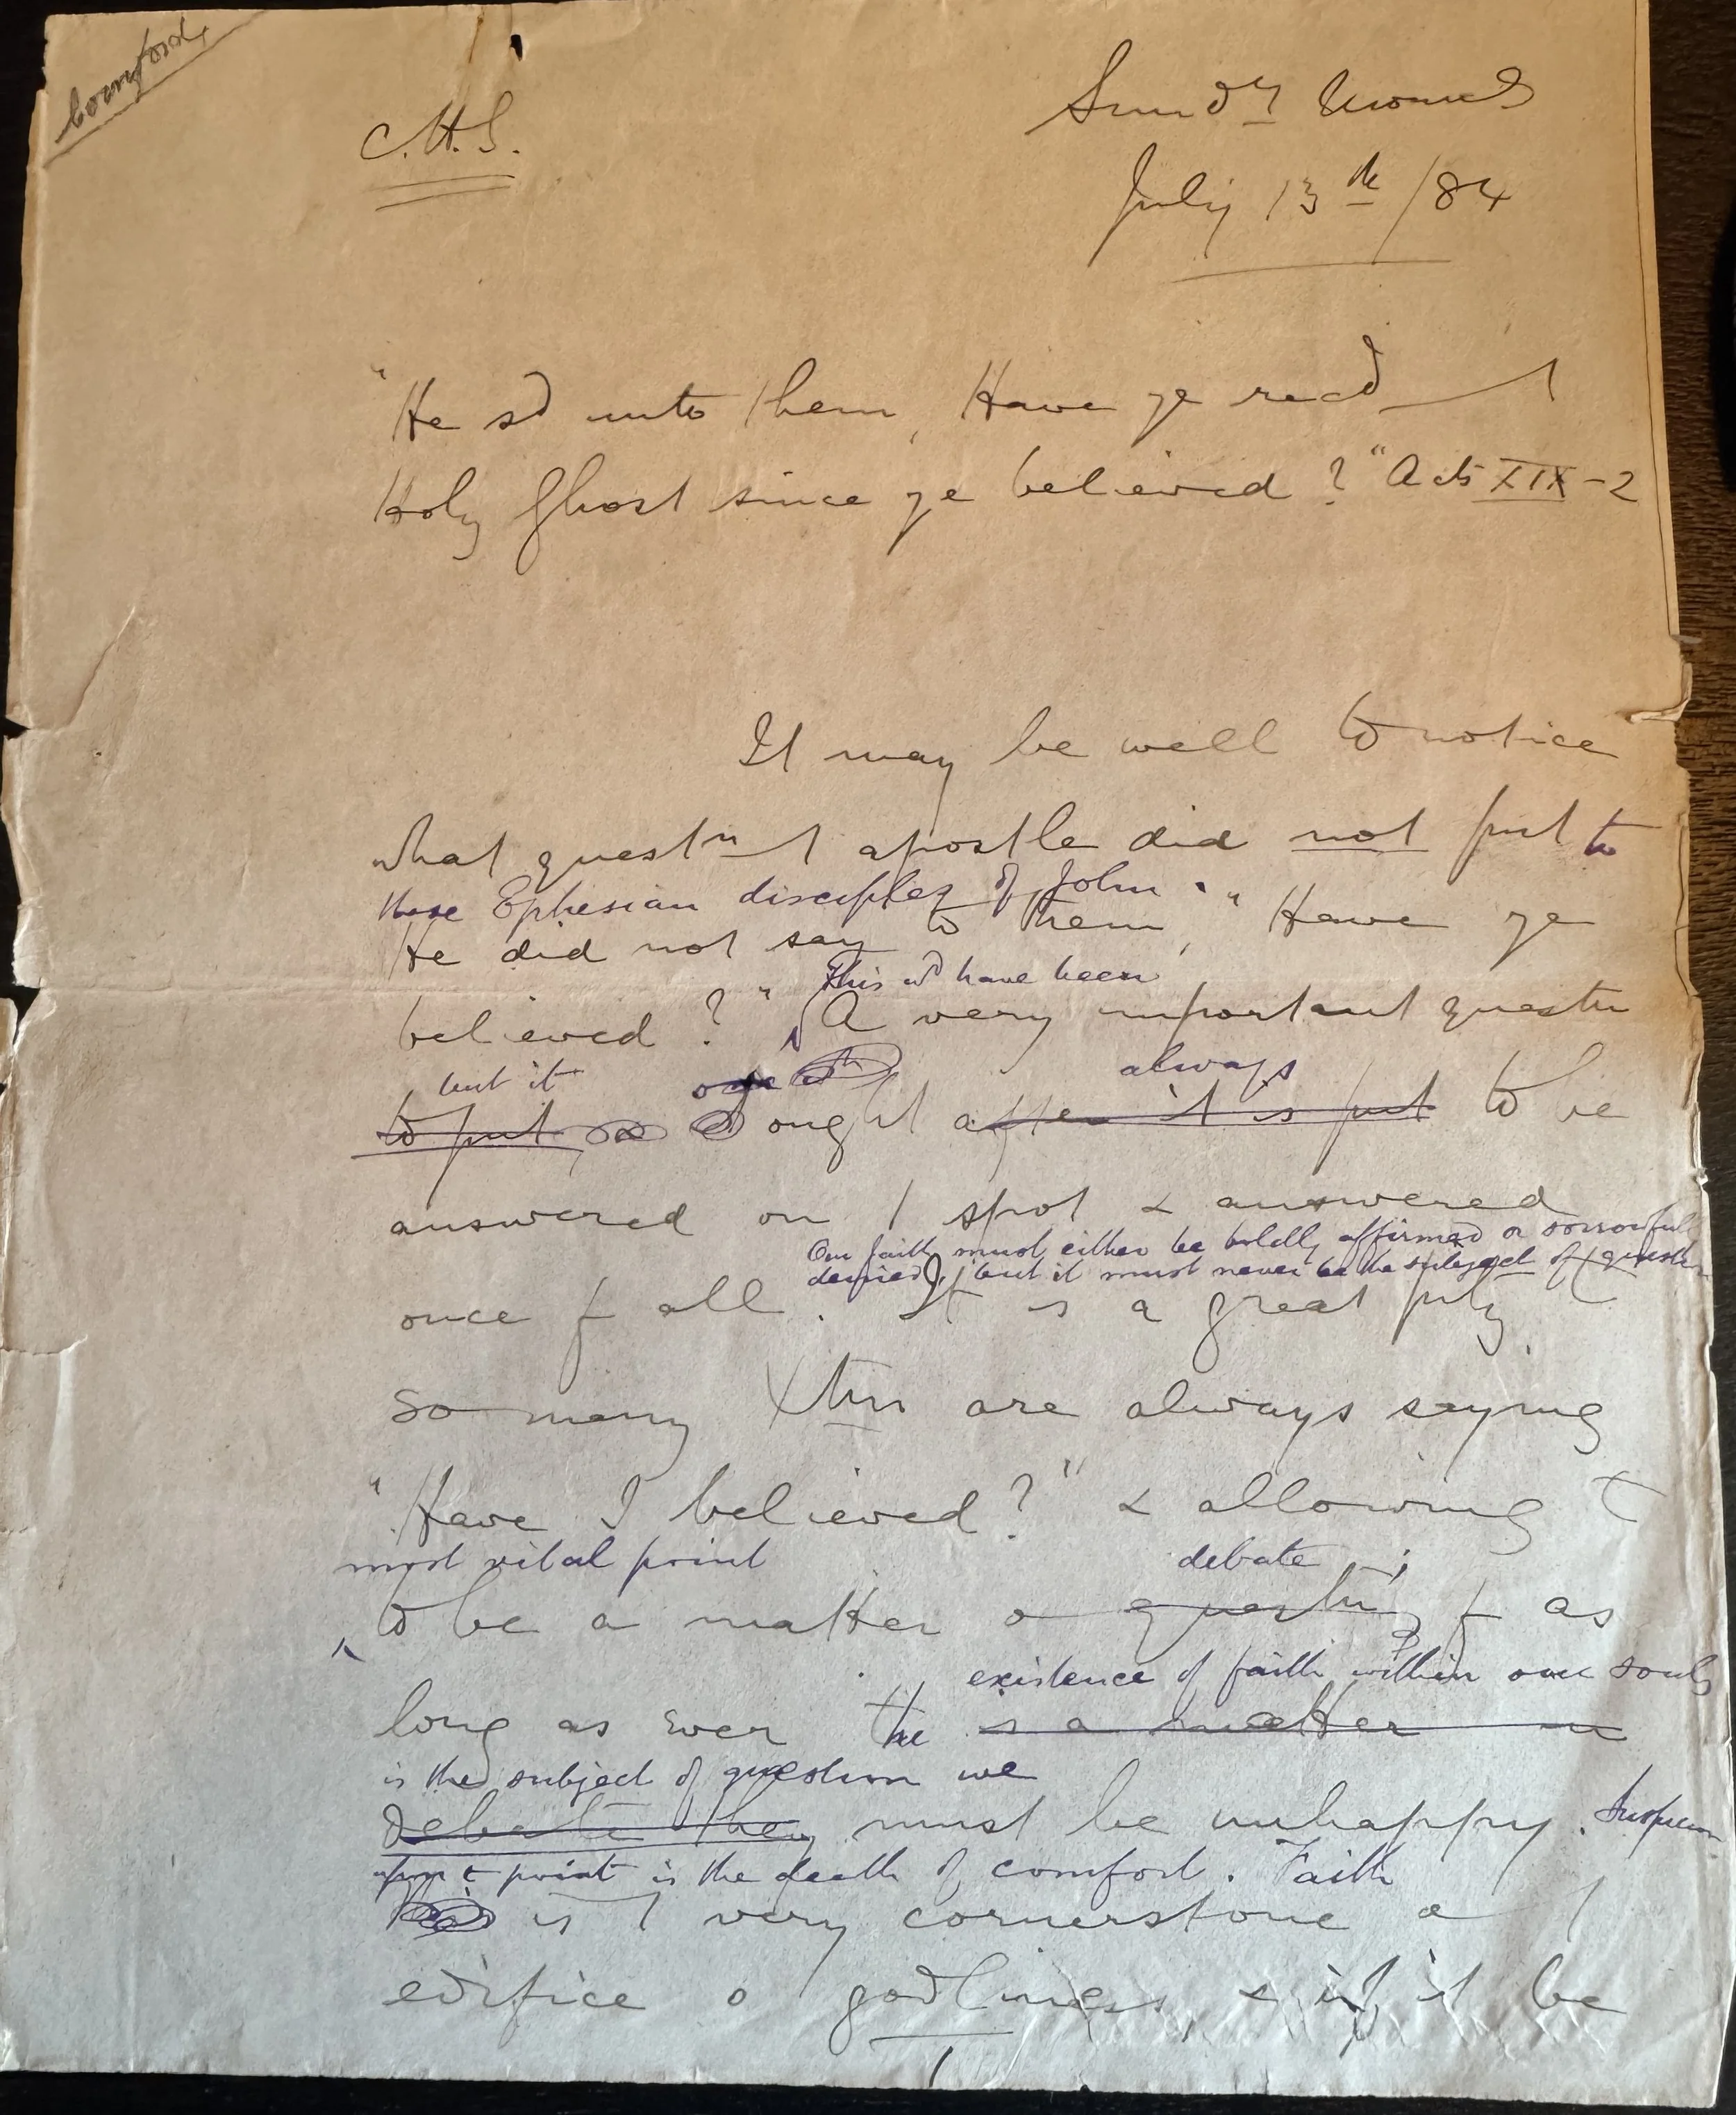 C.H.S.
Sundy Morng
July 13th /84
"He sd unto them, Have ye recd t
Holy Ghost since ye believed?" Acts XIX-2
It may be well to notice
what questn t apostle did not put to
these Ephesian disciples of John.
He did not say to them, "Have ye
This wd have been
believed?" A very important questn
but it always
to put ought after it is put to be
answered on t spot & answered
Our faith must either be boldly affirmed or sorrowfully
denied, but it must never be the subject of question
once f all. It is a great pity
so many Xtns are always saying
"Have I believed?" & allowing t
most vital point debate;
to be a matter o questn, f as
existence of faith within our souls
long as ever the is a matter
is the subject of question we
debate they must be unhappy. Suspicion
upon t point is the death of comfort. Faith
is t very cornerstone o t
edifice o godliness, & if it be
1